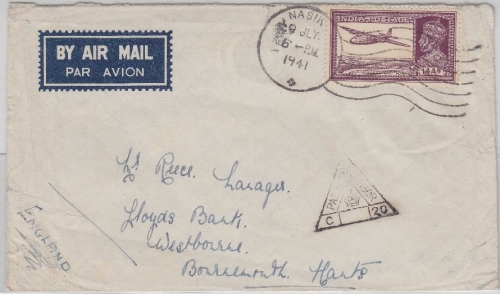 BY AIR MAIL
PAR AVION
NASIK
9 JLY.
6 - PM
1941
INDIA POSTAGE
14 AS
Reece.
Lloyds Bank.
Westbourne.
Bournemouth. Hants
ENGLAND
C 20